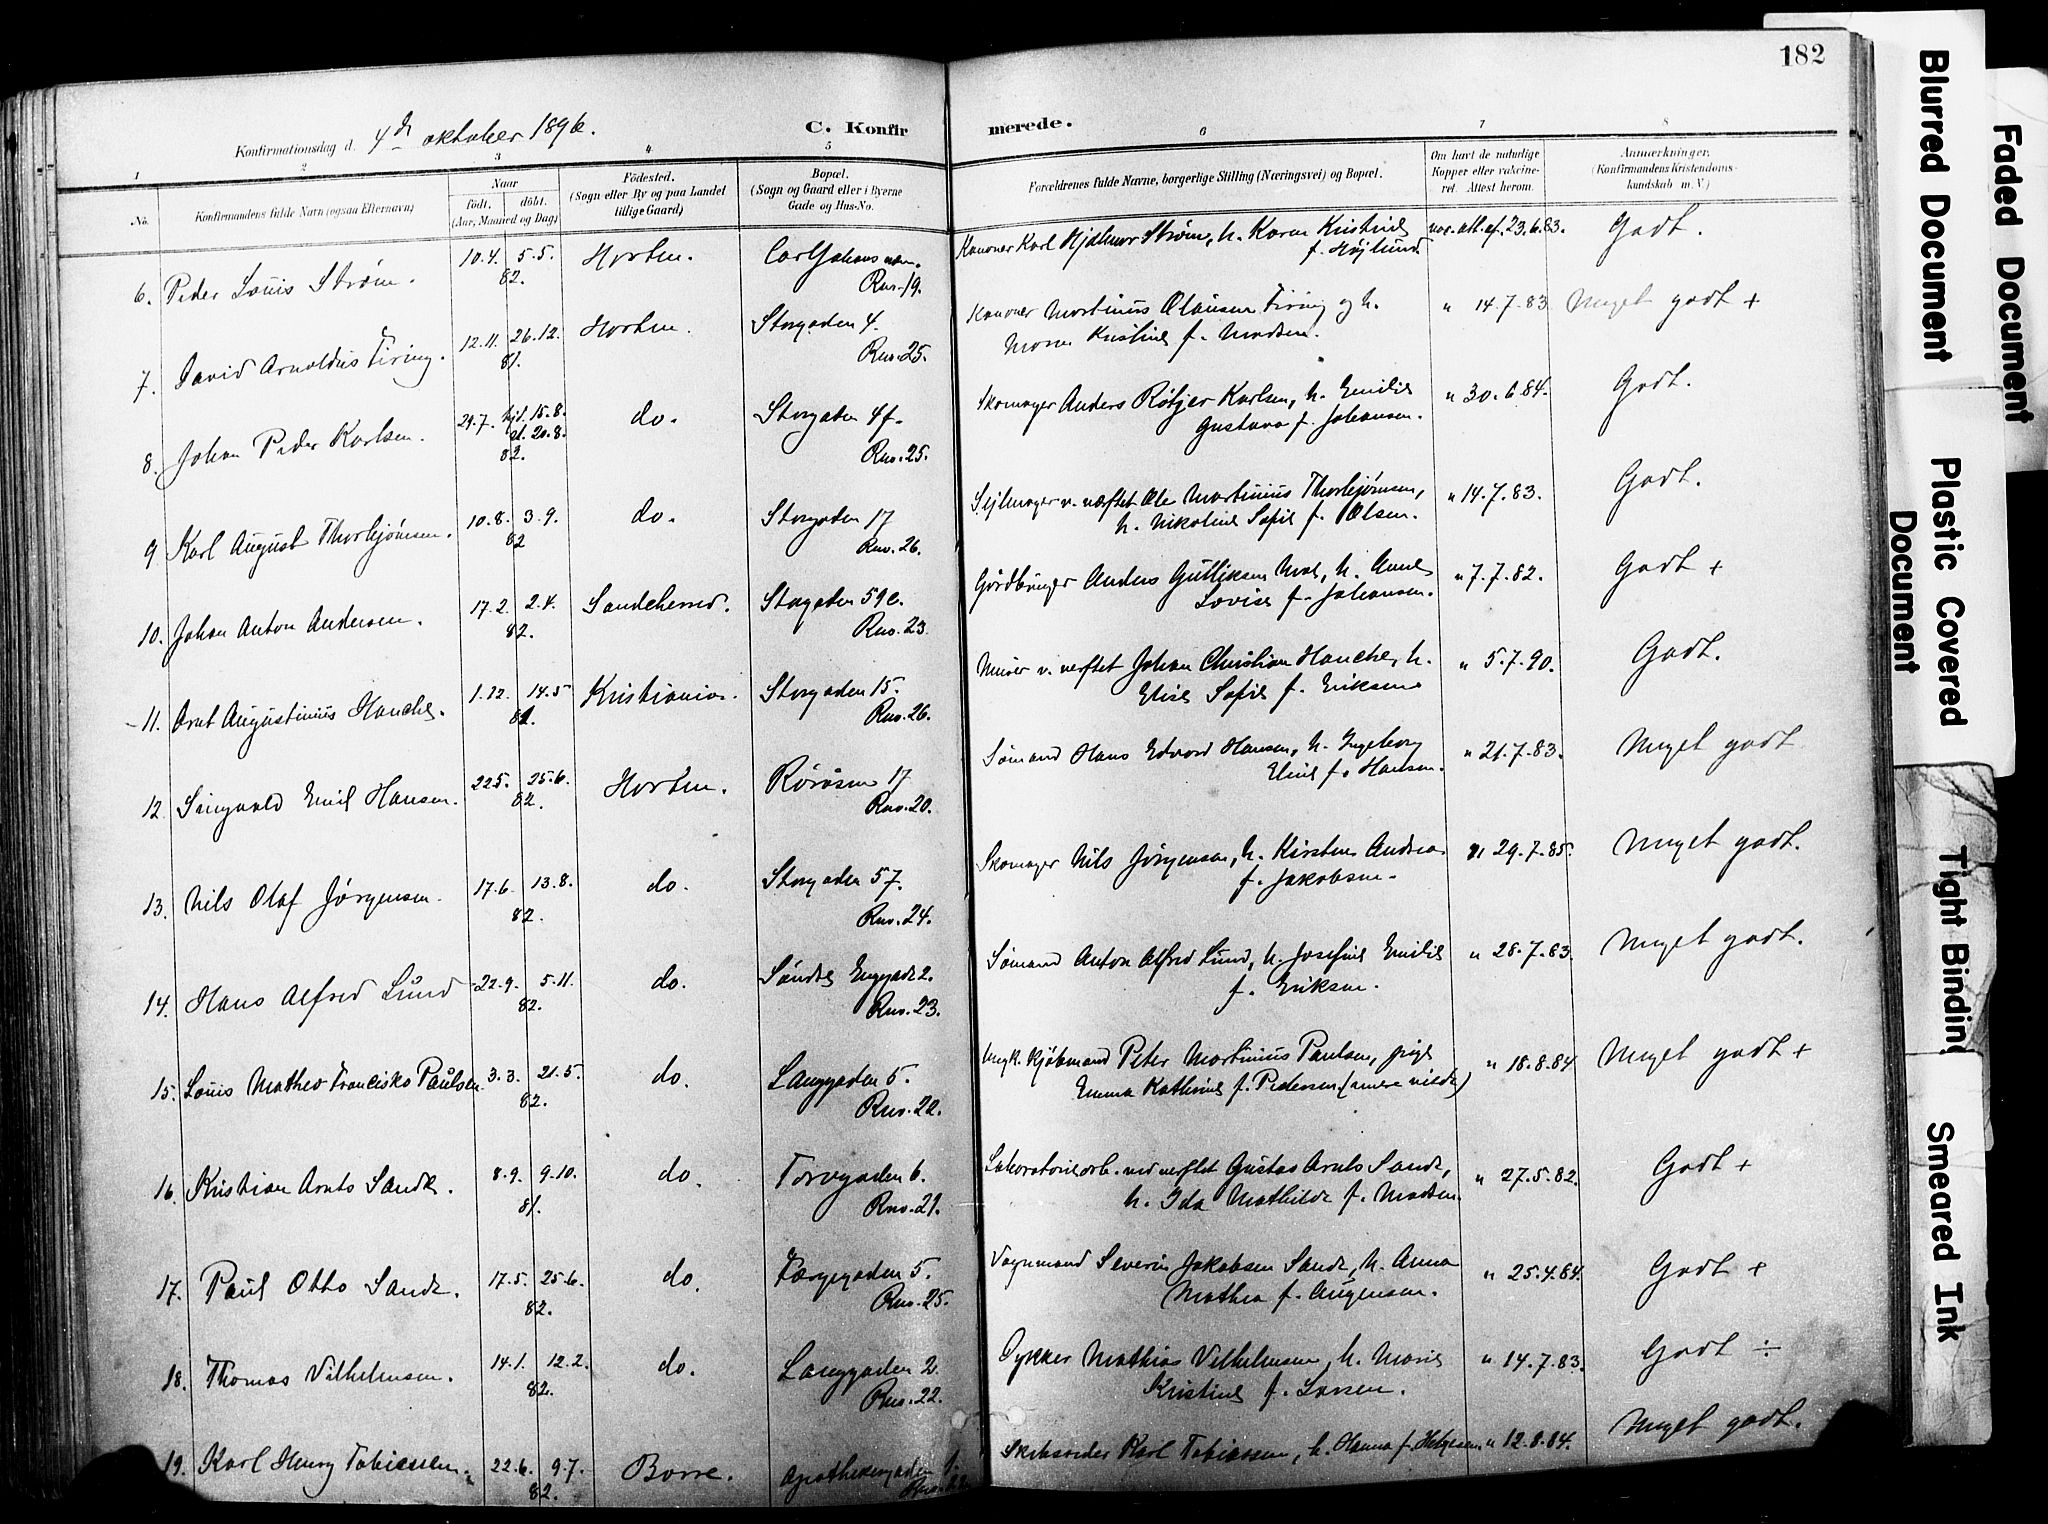 182
Konfirmationsdag d. 4de oktober 1896.
C. Konfirmerede.
1 2 3 4 5 6 7 8
No.
Konfirmandens fulde Navn (ogsaa Efternavn)
Naar
født, døbt.
(Aar, Maaned og Dag)
Fødested.
(Sogn eller By og paa Landet
tillige Gaard)
Bopæl.
(Sogn og Gaard eller i Byerne
Gade og Hus-No.
Forældrenes fulde Navne, borgerlige Stilling (Næringsvei) og Bopæl.
Om havt de naturlige
Kopper eller vakcine-
ret. Attest herom.
Anmærkninger.
(Konfirmandens Kristendoms-
kundskab m. V.)
6. Peder Louis Strøm. 10.4. 5.5. 82. Horten. Carl Johans Rnv. 19.
Kanoner Karl Hjalmar Strøm, h. Karen Kristine
f. Højlund. vac. att. af. 23.6.83. Godt.
7. David Arnoldus Firing. 12.11. 26.12. 81. Horten. Storgaden 4.
Rnv. 25.
Kanoner Martinius Olausen Firing og h.
Maren Kristine f. Madsen. " 14.7.83 Meget godt +
8. Johan Peder Karlsen. 29.7. hjd. 15.8. st. 20.8. 82. do. Storgaden 4f.
Rnv. 25.
Skomager Anders Røtjer Karlsen, h. Emilie
Gustava f. Johansen. " 30.6.84. Godt.
9 Karl August Thorbjørnsen. 10.8. 3.9. 82 do. Storgaden 17
Rnv. 26.
Sejlmager v. værftet Ole Martinius Thorbjørnsen,
h. Nikoline Sofie f. Olsen. " 14.7.83. Godt.
10. Johan Anton Andersen. 17.2. 2.4. 82. Sandeherred. Storgaden 51c.
Rnv. 23.
Gårdbruger Anders Gulliksen Moe, h. Anne
Lovise f. Johansen. " 7.7.82. Godt +
11. Arnt Augustinius Hanche. 1.12. 14.5 81. Kristiania. Storgaden 15.
Rnv. 26.
Murer v. verftet Johan Christian Hanche, h.
Elise Sofie f. Eriksen " 5.7.90. Godt.
12. Singvald Emil Hansen. 22.5. 25.6. 82. Horten. Rørosen 17
Rnv. 20.
Sømand Hans Edvard Hansen, h. Ingeborg
Eline f. Hansen. " 21.7.83. Meget godt
13. Nils Olaf Jørgensen. 17.6. 13.8. 82. do. Storgaden 57.
Rnv. 24.
Skomager Nils Jørgensen, h. Kirsten Andrea
f. Jakobsen. " 29.7.85. Meget godt.
14. Hans Alfred Lund 22.9. 5.11. 82. do. Søndre Enggade 2.
Rnv. 23.
Sømand Anton Alfred Lund, h. Josefine Emilie
f. Eriksen. " 28.7.83. Meget godt.
15. Louis Matheo Francisko Paulsen. 3.3. 21.5. 82. do. Langgaden 5.
Rnv. 22.
Ungk. kjøbmand Peter Martinius Paulsen, pige
Emma Kathrine f. Pedersen (senere viede) " 18.8.84 Meget godt +
16. Kristian Arnts Sande. 8.9. 9.10. 81. do. Torvgaden 6.
Rnv. 21.
Laboratoriearb. ved verftet Gustav Arnts Sande,
h. Ida Mathilde f. Madsen. " 27.5.82. Godt +
17. Paul Otto Sande. 17.5. 25.6. 82. do. Færgegaden 5.
Rnv. 25.
Vognmand Severin Jakobsen Sande, h. Anna
Mathea f. Augensen. " 25.4.84. Godt +
18. Thomas Vilhelmsen. 14.1. 12.2. 82. do. Langgaden 2
Rnv. 22.
Dykker Mathias Vilhelmsen, h. Marie
Kristine f. Larsen. " 14.7.83. Godt ÷
19. Karl Henry Tobiassen. 22.6. 9.7. 82. Borre. Apothekergaden 1.
Skibsreder Karl Tobiassen, h. Hanna f. Helgesen " 12.8.84. Meget godt.
Faded Document
Blurred Document
Plastic Covered
Document
Tight Binding
Smeared Ink